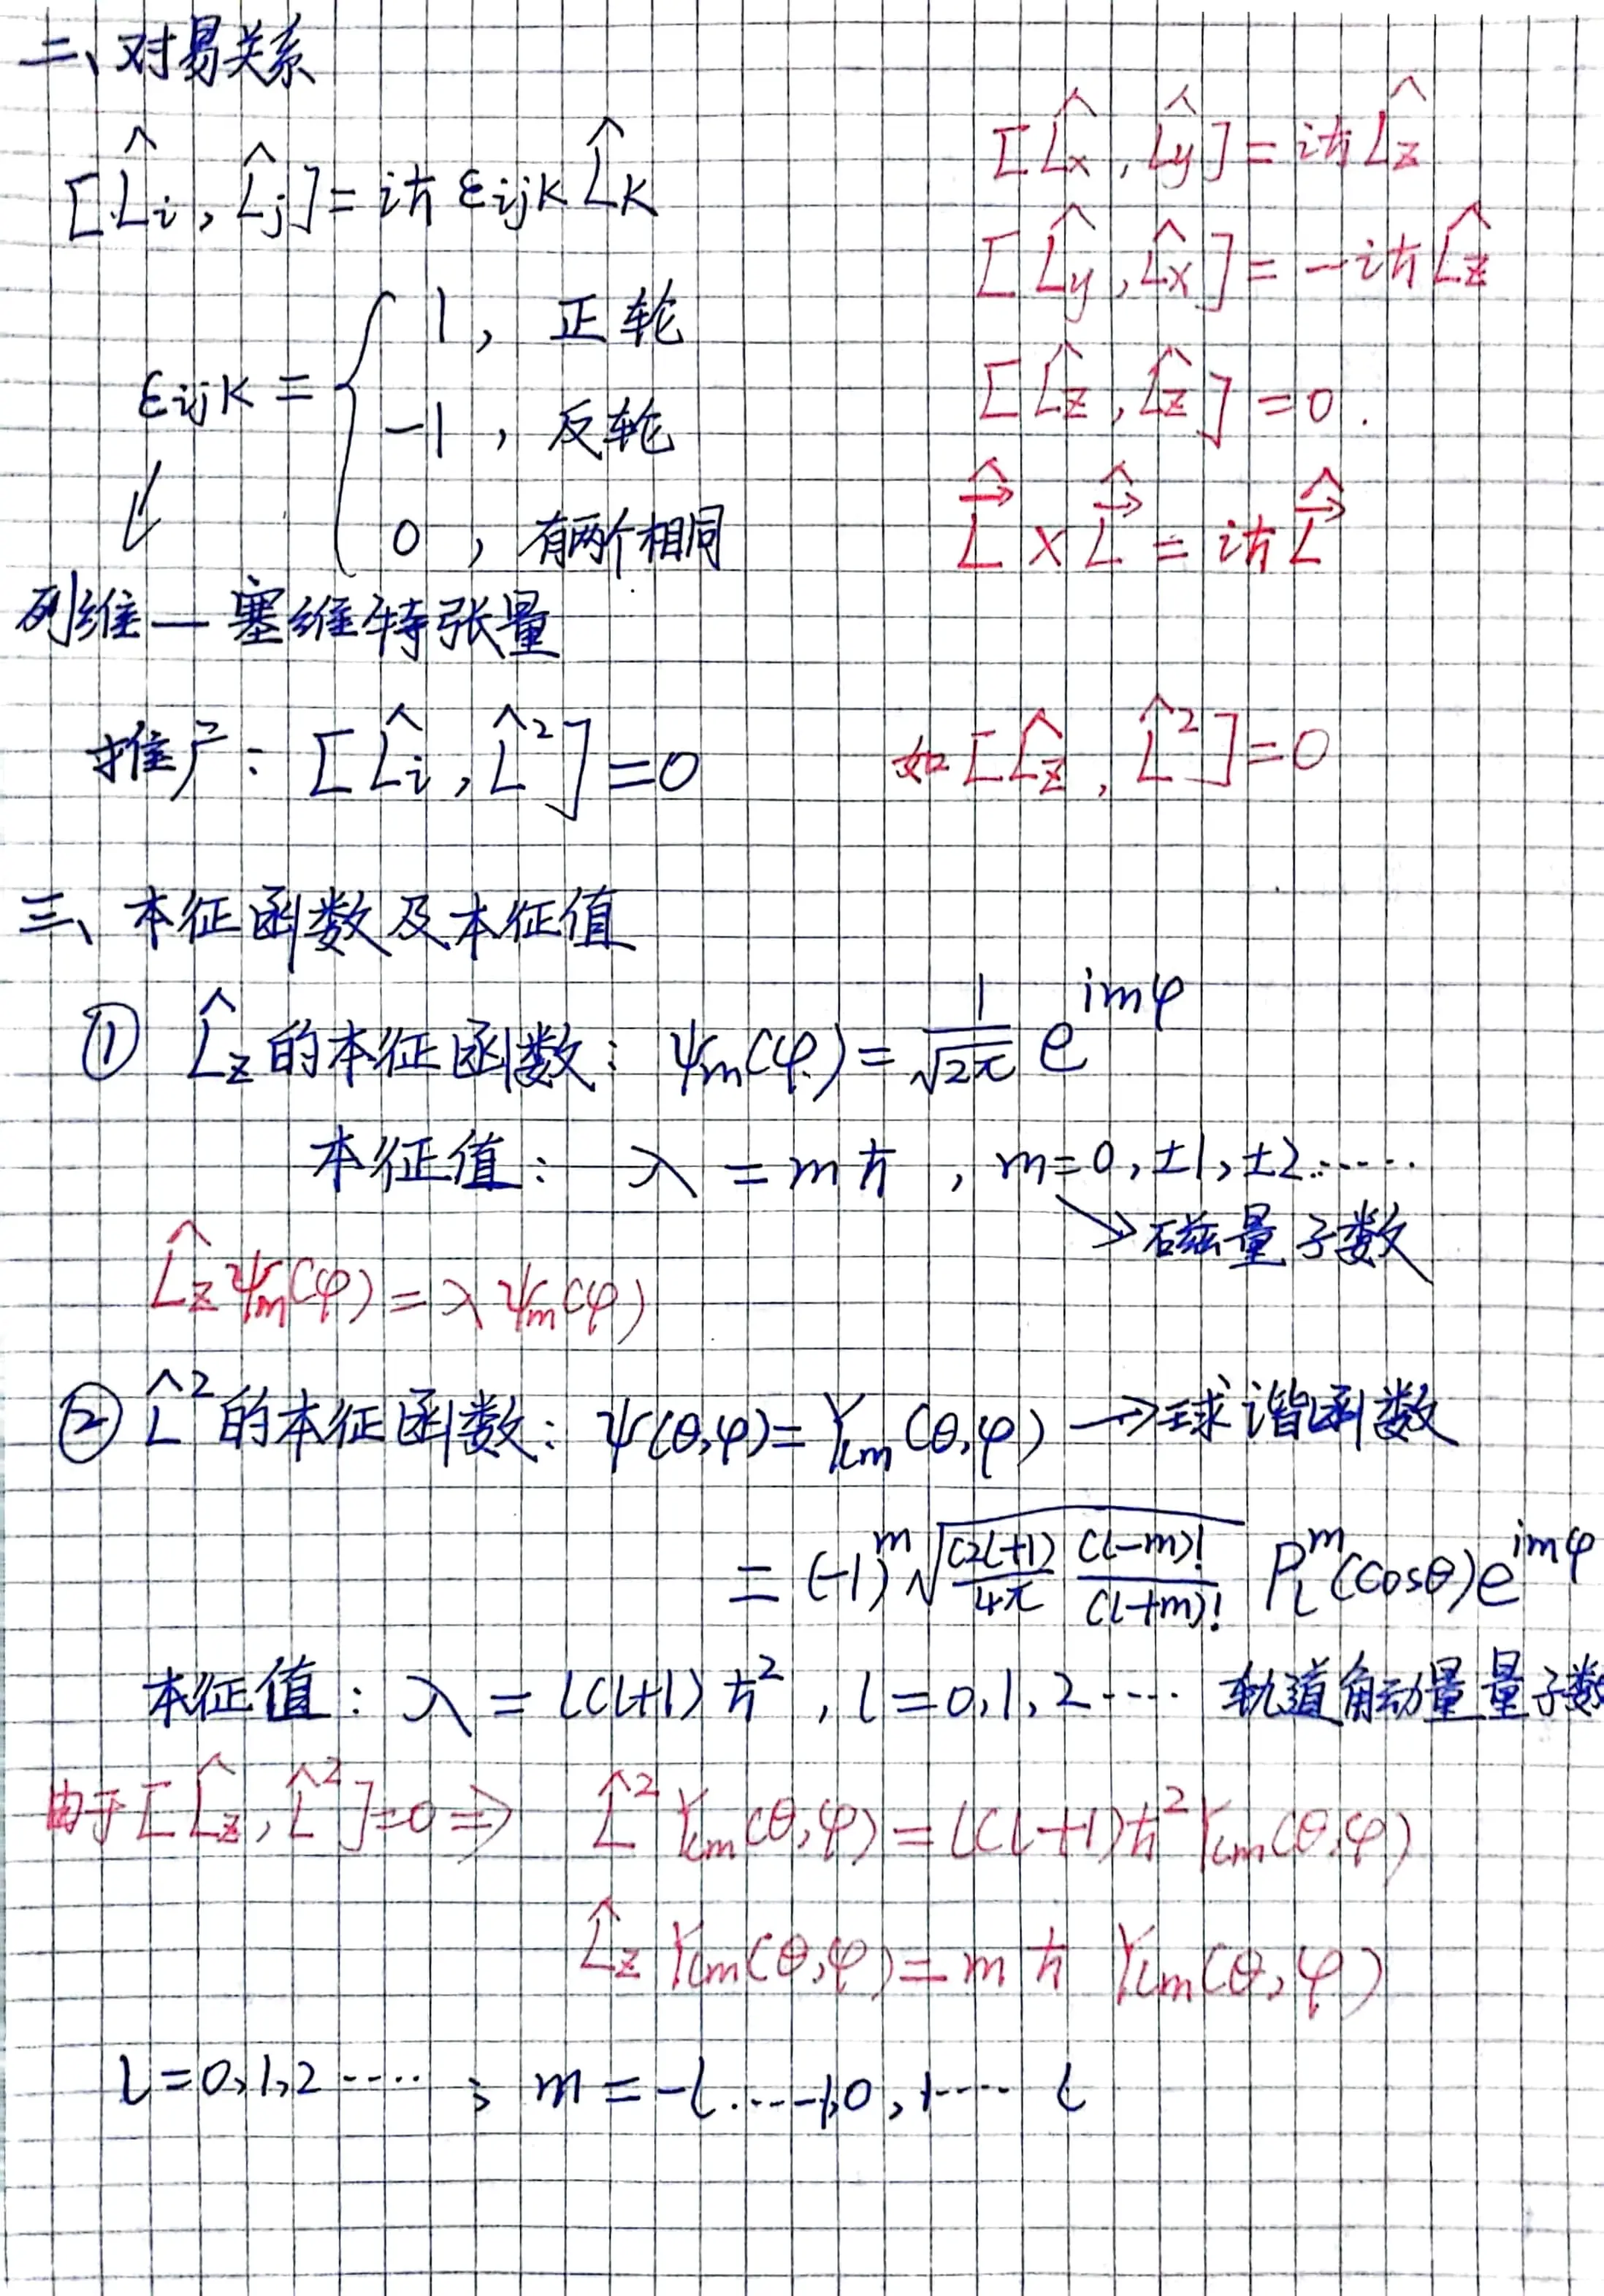 二、对易关系
[L̂x, L̂y] = iħL̂z
[L̂i, L̂j] = iħ εijk L̂k
[L̂y, L̂x] = -iħL̂z
εijk = { 1, 正轮
-1, 反轮
0, 有两个相同
[L̂z, L̂z] = 0.
L̂⃗ × L̂⃗ = iħL̂⃗
列维—塞维特张量
推广: [L̂i, L̂²] = 0
如 [L̂z, L̂²] = 0
三、本征函数及本征值
① L̂z 的本征函数: ψm(φ) = 1/√2π e^imφ
本征值: λ = mħ, m = 0, ±1, ±2……
→ 磁量子数
L̂z ψm(φ) = λ ψm(φ)
② L̂² 的本征函数: ψ(θ,φ) = Ylm(θ,φ) → 球谐函数
= (-1)^m √((2l+1)/4π (l-m)!/(l+m)!) P_l^m(cosθ) e^imφ
本征值: λ = l(l+1)ħ², l = 0, 1, 2 …… 轨道角动量量子数
由于 [L̂z, L̂²] = 0 ⇒ L̂² Ylm(θ,φ) = l(l+1)ħ² Ylm(θ,φ)
L̂z Ylm(θ,φ) = mħ Ylm(θ,φ)
l = 0, 1, 2 …… ; m = -l …… -1, 0, 1 …… l